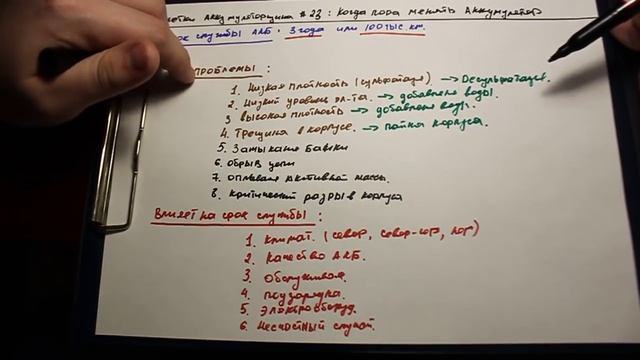 Аккумуляторщика #23: Когда пора менять Аккумулятор
службы АКБ - 3 года или 100 тыс. км.
проблемы:
1. Низкая плотность (сульфатация) → Десульфатация.
2. Низкий уровень эл-та. → добавляем воды.
3 высокая плотность → добавляем воды.
4. Трещина в корпусе. → пайка корпуса.
5. Замыкание банки
6. обрыв цепи
7. оплывание активной массы.
8. критический разрыв корпуса
Влияет на срок службы:
1. климат. (север, север-юг, юг)
2. качество АКБ.
3. обслуживан.
4. подзарядка.
5. электрооборуд.
6. Несчастный случай.